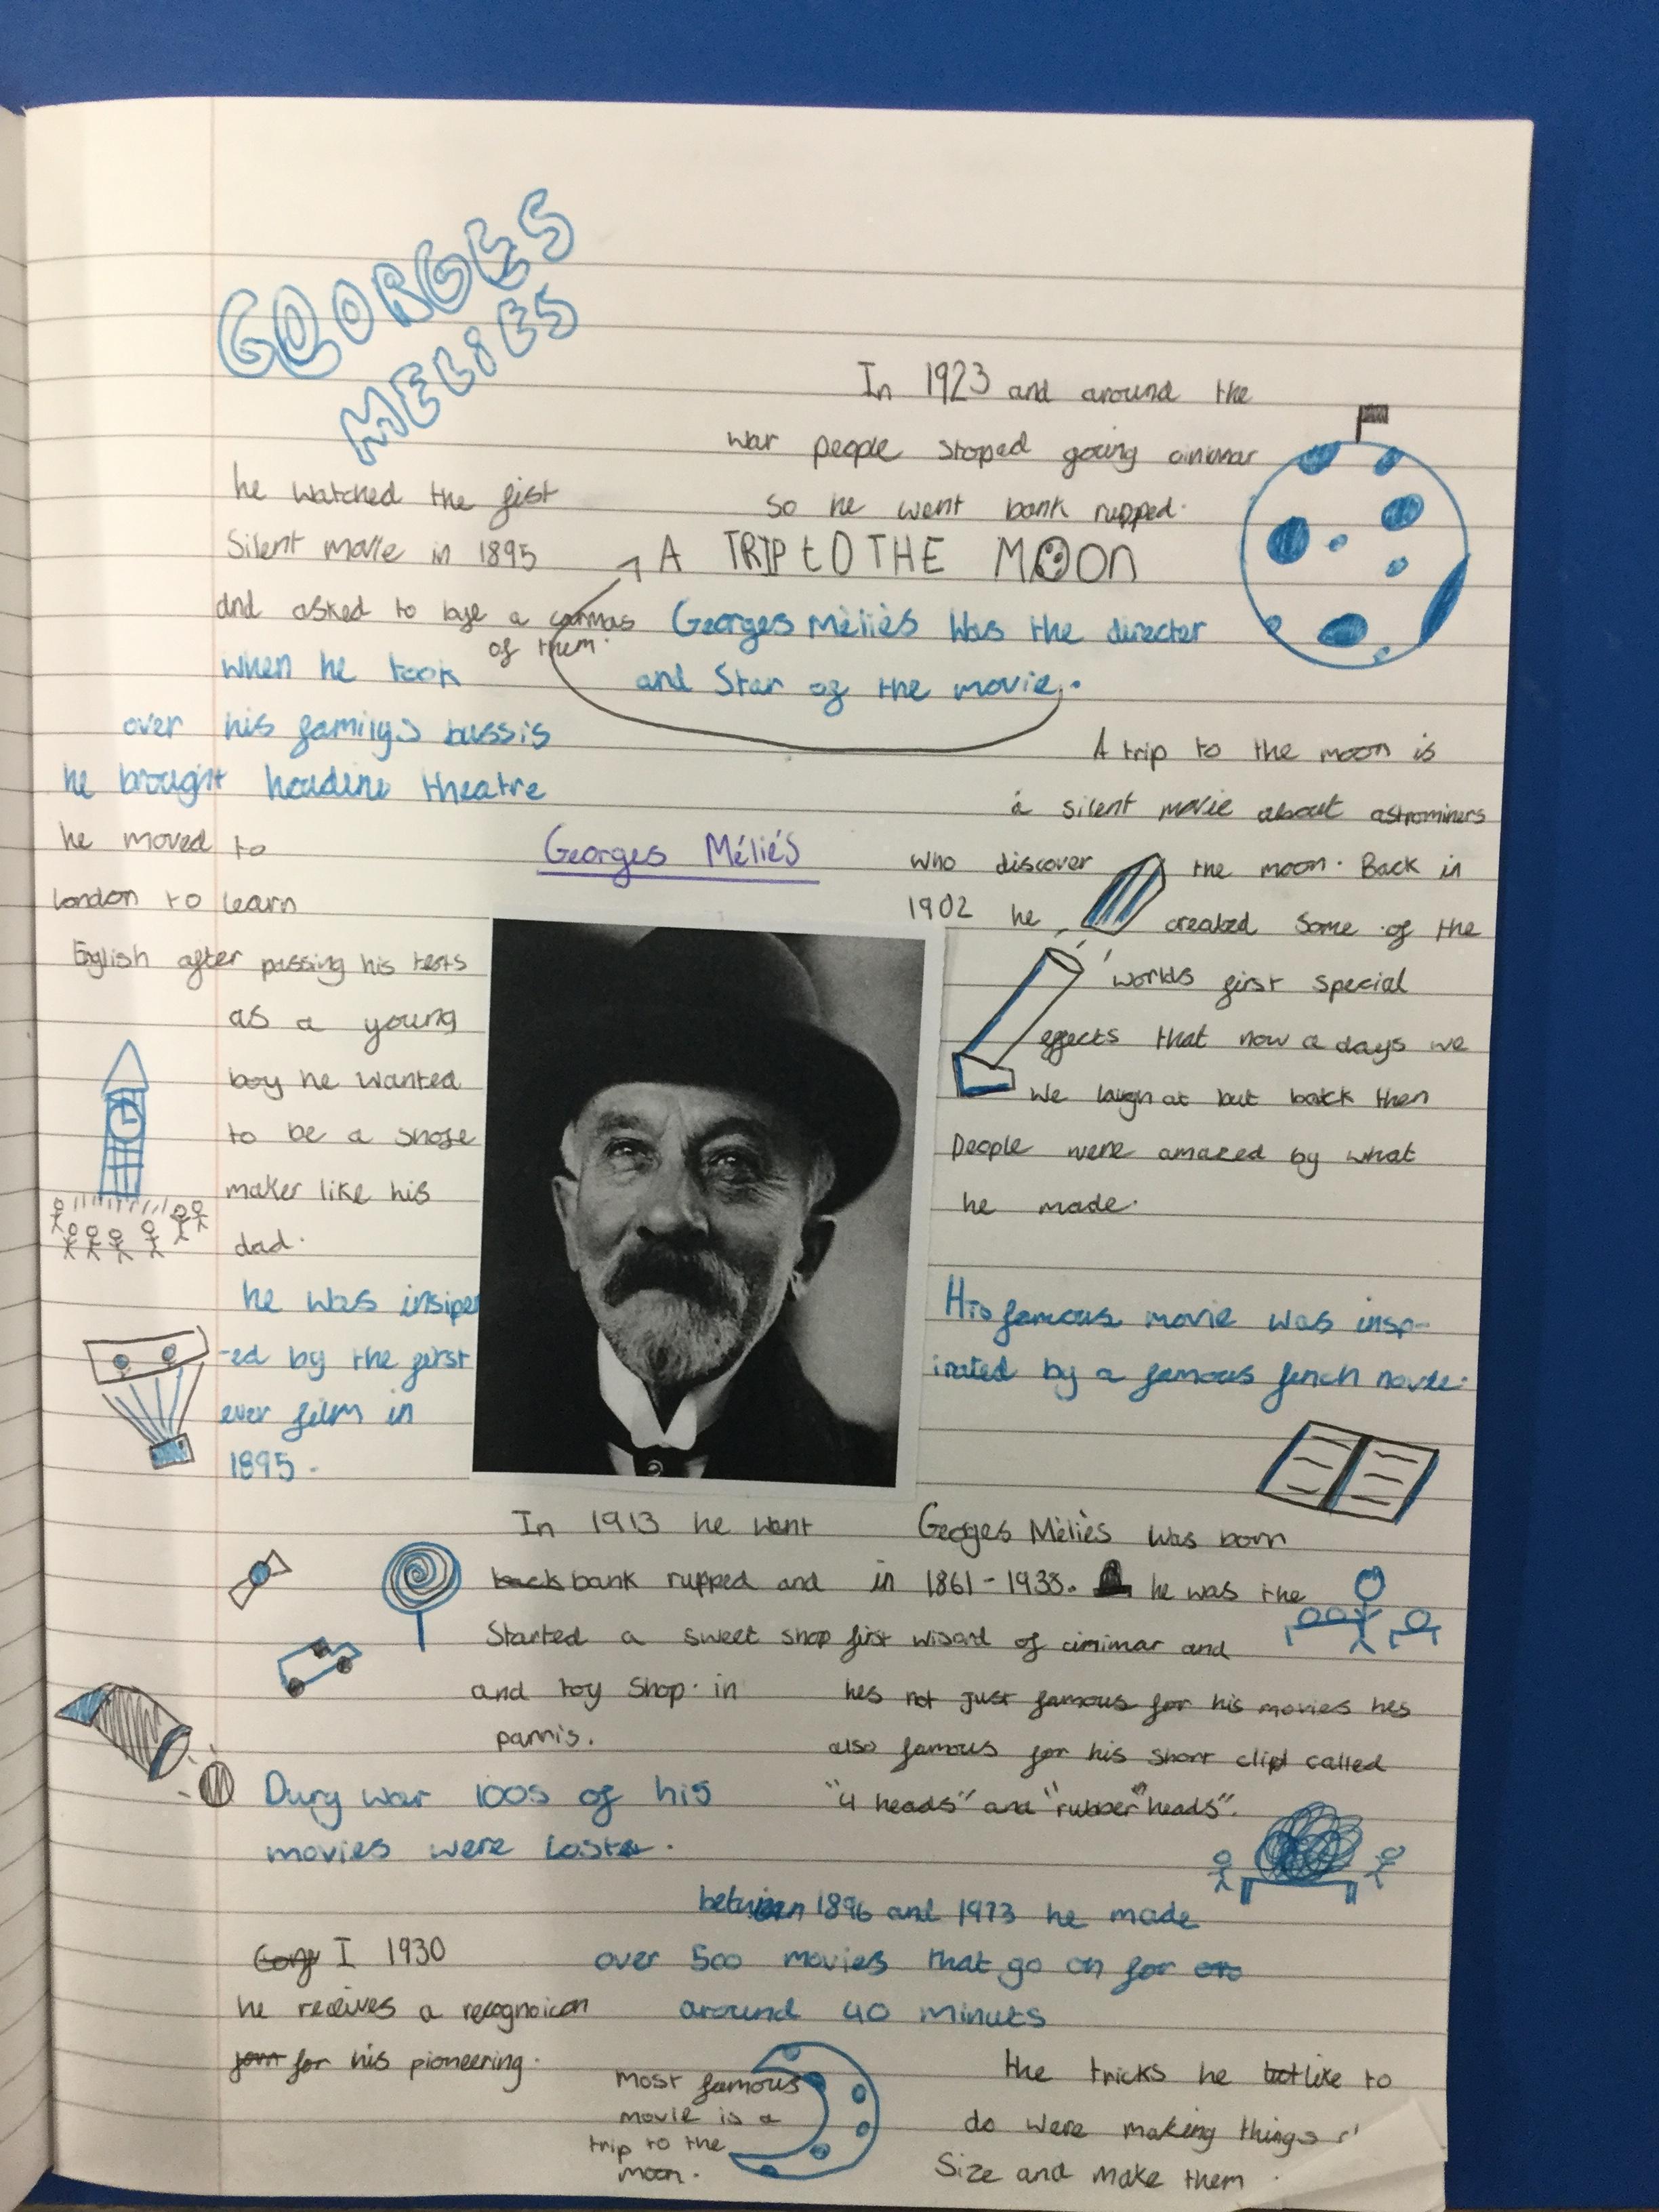 GEORGES
MELIES
he watched the fist
Silent movie in 1895
and asked to bye a camras
of them.
when he took
over his family's bussis
he brought houdini theatre
he moved to
london to learn
English after passing his tests
as a young
boy he wanted
to be a shose
maker like his
dad.
he was insiper
-ed by the first
ever film in
1895.
In 1923 and around the
war people stoped going cinimar
so he went bank rupped.
A TRIP tO THE MOON
Georges Mèliès Was the directer
and Star of the movie.
A trip to the moon is
a silent movie about astrominers
who discover the moon. Back in
1902 he created Some of the
worlds first special
effects that now a days we
we laugh at but back then
People were amazed by what
he made.
Georges Méliés
His famous movie was insp-
irated by a famous fench novle.
In 1913 he want
back bank rupped and
Started a sweet shop
and toy shop. in
parris.
Georges Mèliès was born
in 1861-1938. he was the
first wisard of cinimar and
hes not just famous for his movies hes
also famous for his short clip called
"4 heads" and "rubber" heads".
Dury war 100s of his
movies were lost.
between 1896 and 1973 he made
over 500 movies that go on for
around 40 minuts
I 1930
he recives a recognoicon
for his pioneering.
most famous
movie is a
trip to the
moon.
the tricks he like to
do were making things
Size and make them